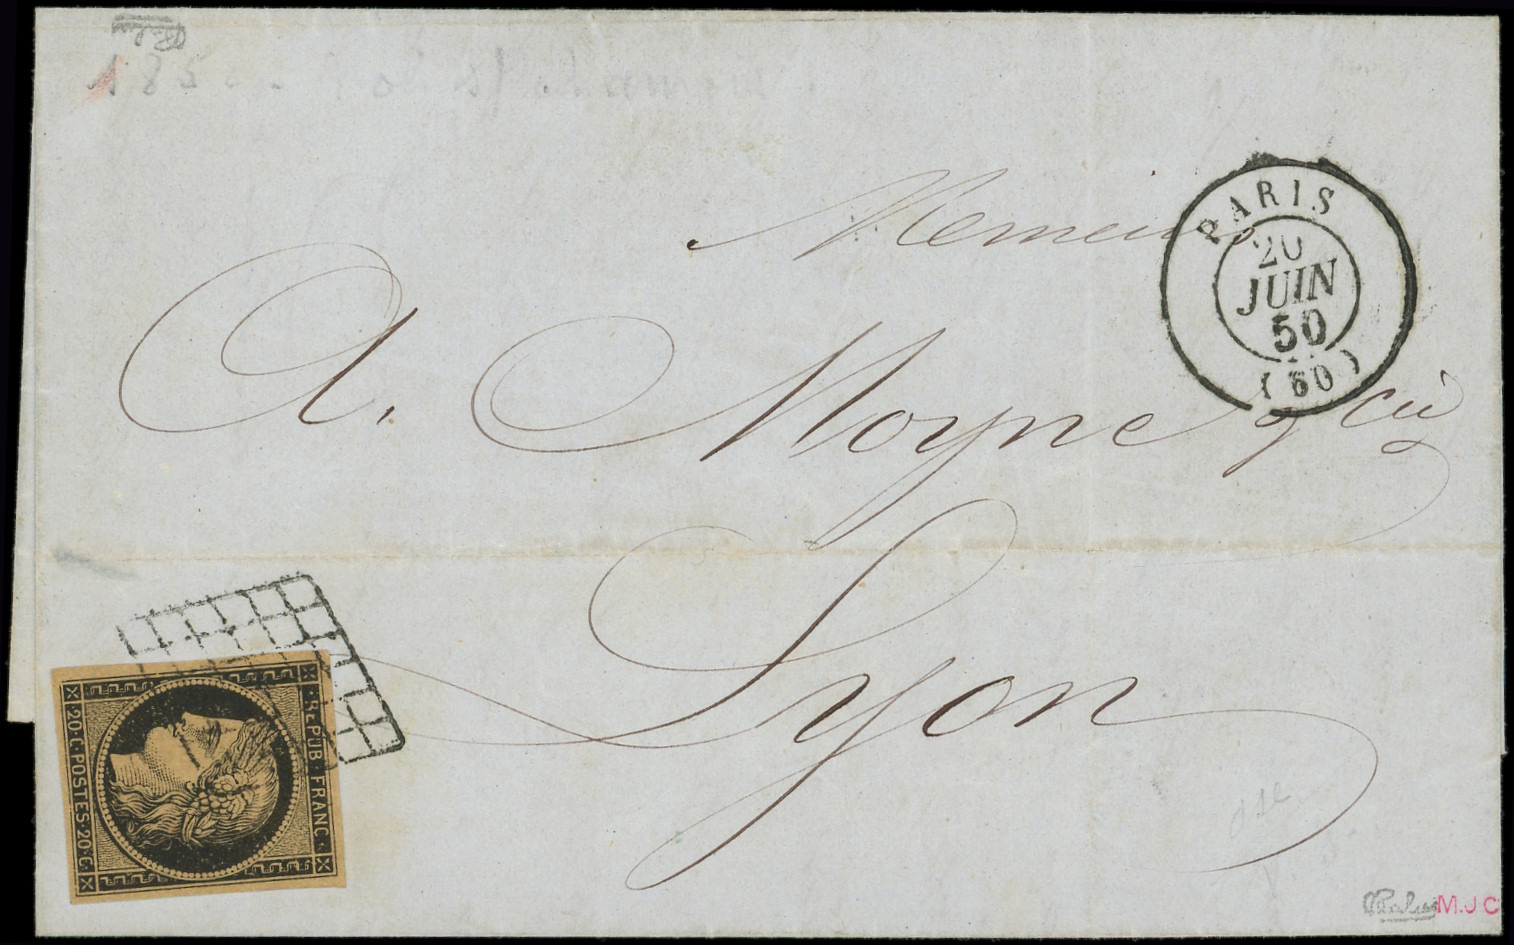 PARIS
20
JUIN
50
(60)
A. Moyne & cie
Lyon
REPUB. FRANC.
20.C. POSTES. 20.C.
M.J.C